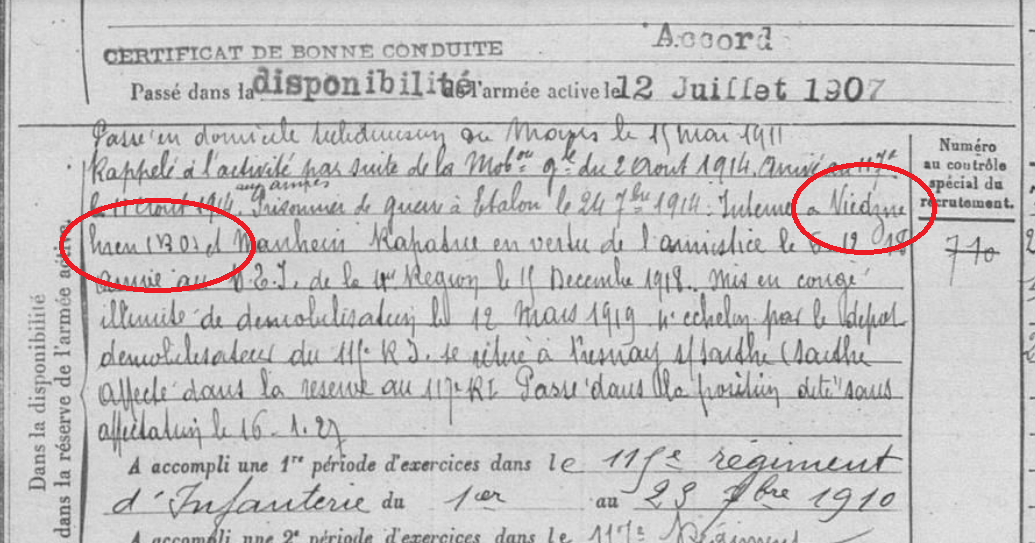 CERTIFICAT DE BONNE CONDUITE Accord
Passé dans la disponibilité de l'armée active le 12 Juillet 1907
Passé en domicile au le 15 mai 1911
Rappelé à l'activité par suite de la Mob.on gle du 2 Aout 1914. Arrivé au 117e
le 11 Aout 1914. aux armées Prisonnier de guerre à Etalon le 24 7bre 1914. Interné à
hren (BO) et Manheim Rapatrié en vertu de l'armistice le 12 18
arrivé au D.E.I. de la 4me Région le 15 Decembre 1918. Mis en congé
illimité de demobilisation le 12 Mars 1919 4e echelon par le depot
demobilisateur du 115e R.I. se retire à Fresnay s/sarthe (Sarthe
affecté dans la reserve au 117e RI Passé dans la position dite "sans
affectation le 16-1.27
Numéro
au contrôle
spécial du
recrutement.
710
Dans la disponibilité
dans la réserve de l'armée active.
A accompli une 1re période d'exercices dans le 115e régiment
d'Infanterie du 1er au 23 1910
A accompli une 2e période d'exercices dans 117e Régiment